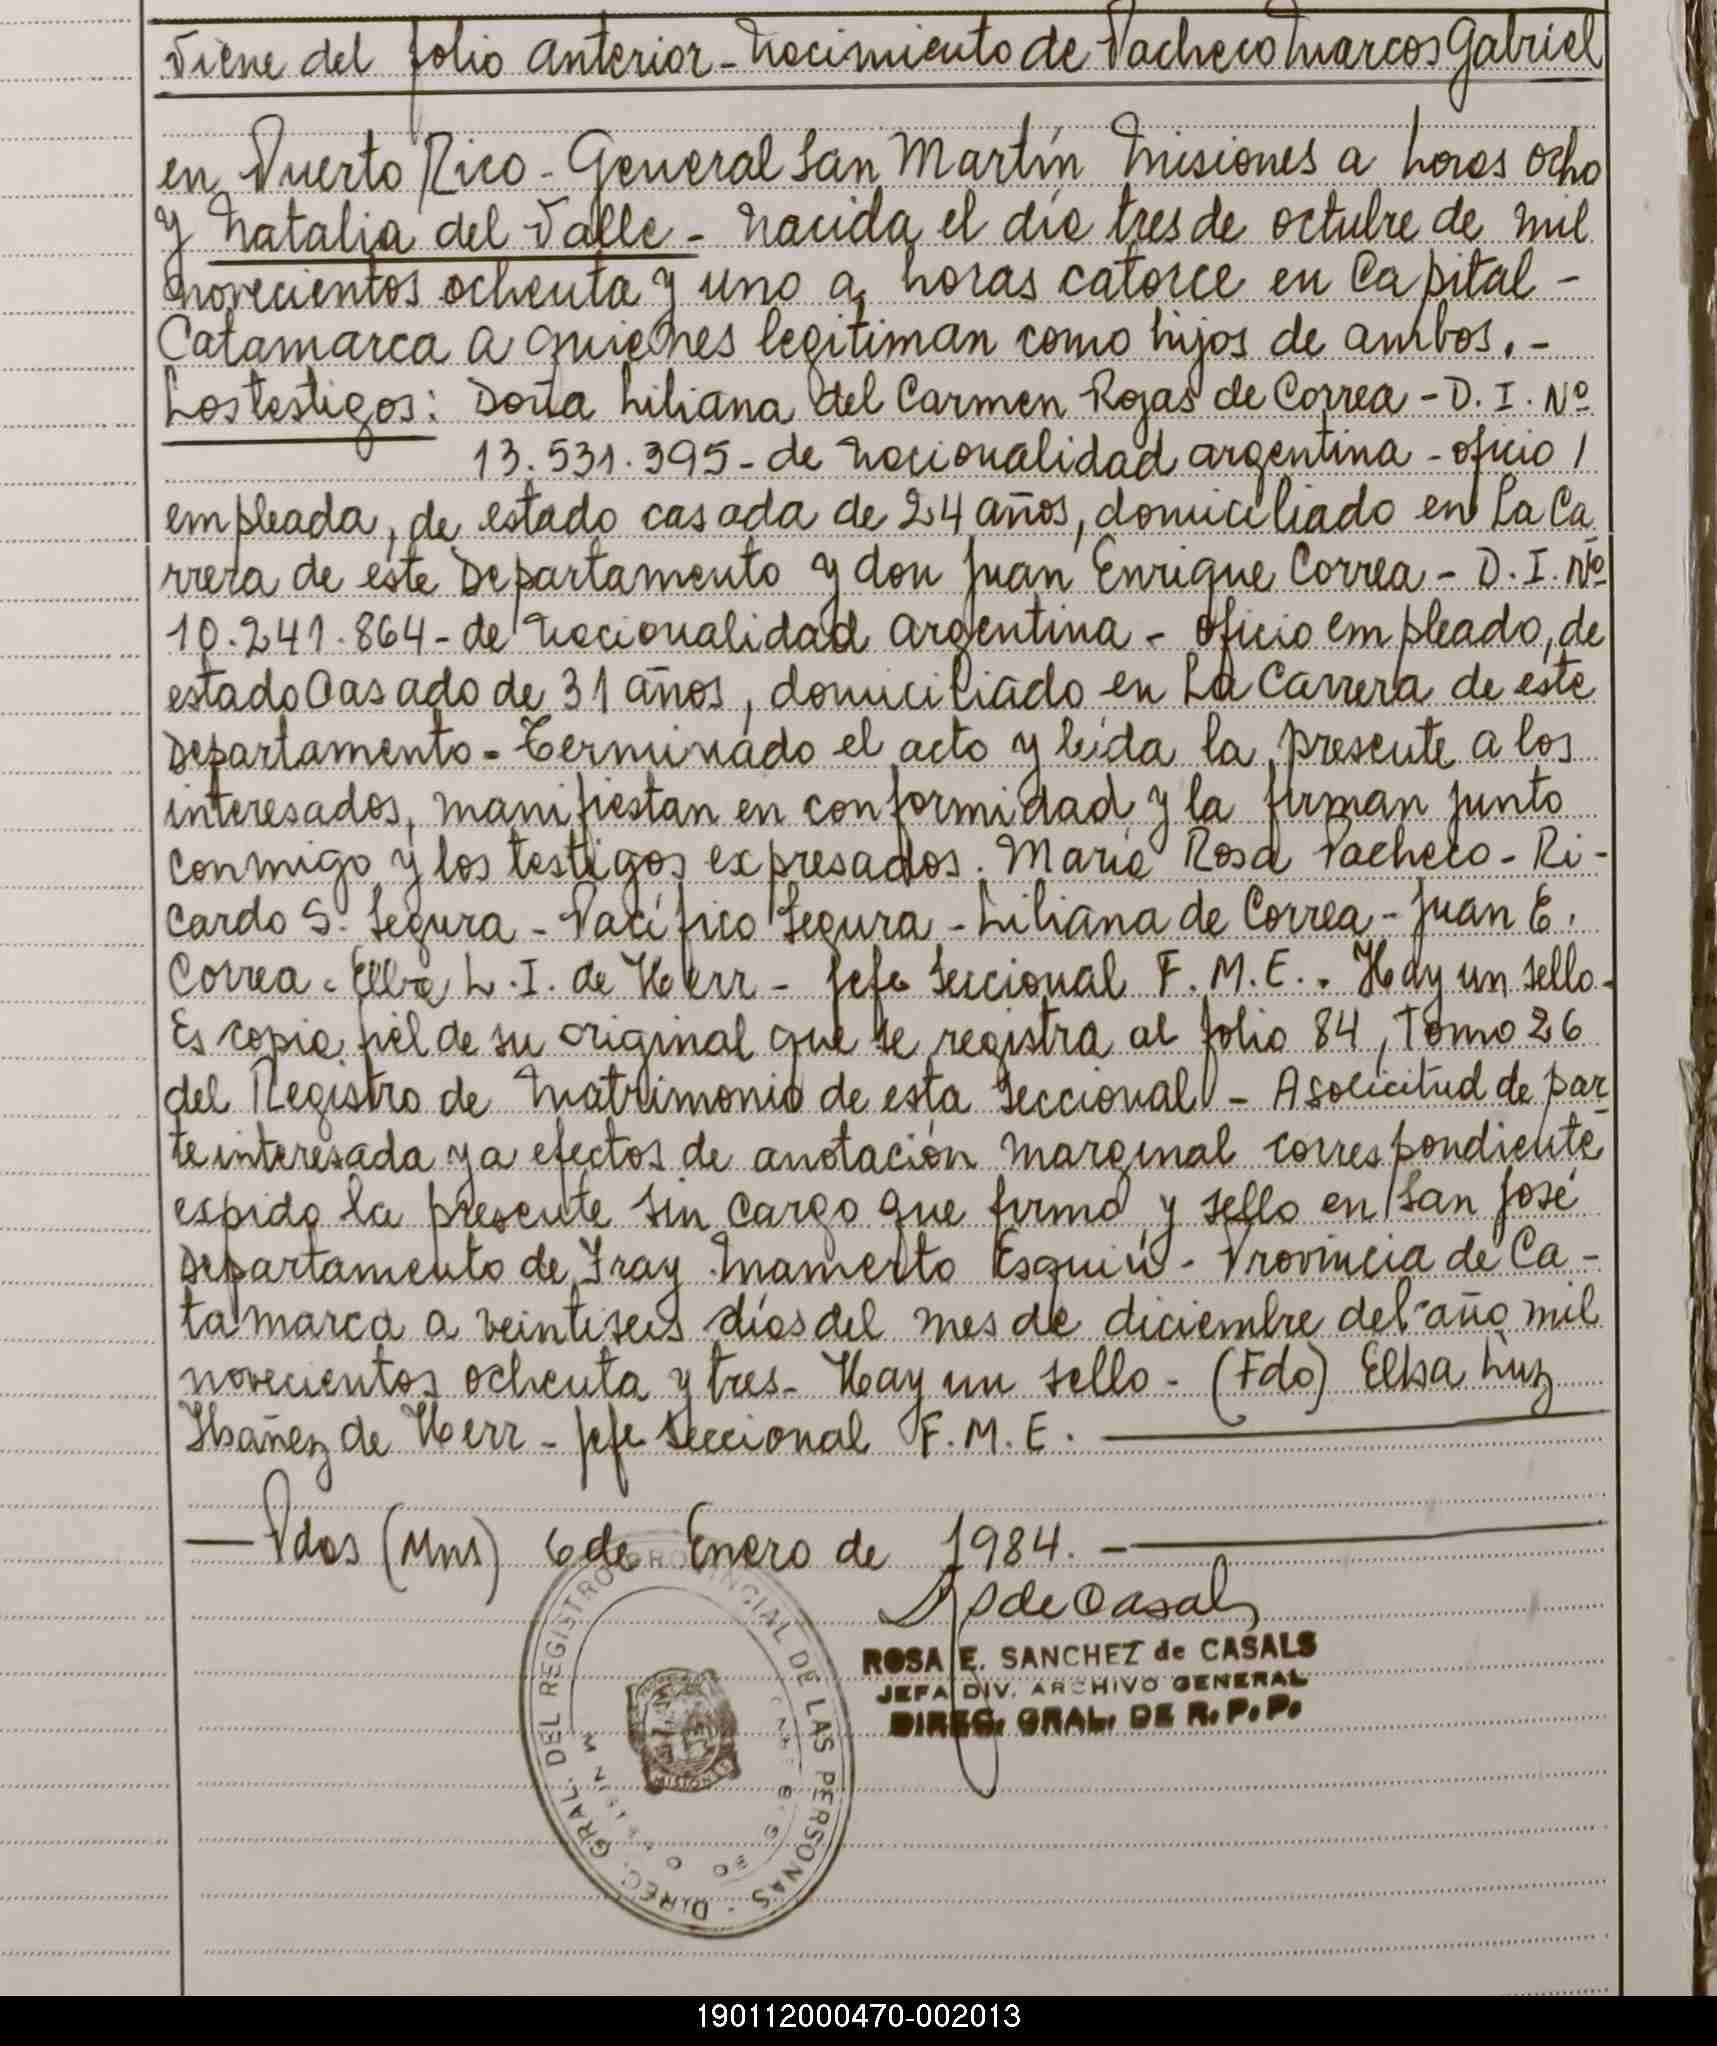 Viene del folio anterior - Nacimiento de Pacheco Marcos Gabriel
en Puerto Rico - General San Martín Misiones a horas ocho
y Natalia del Valle - nacida el día tres de octubre de mil
novecientos ochenta y uno a horas catorce en Capital -
Catamarca a quienes legitiman como hijos de ambos. -
Los testigos: Doña Liliana del Carmen Rojas de Correa - D. I. Nº
13.531.395 - de nacionalidad argentina - oficio
empleada, de estado casada de 24 años, domiciliado en La Ca
rrera de este Departamento y don Juan Enrique Correa - D. I. Nº
10.241.864 - de nacionalidad argentina - oficio empleado, de
estado Casado de 31 años, domiciliado en La Carrera de este
Departamento - Terminado el acto y leída la presente a los
interesados, manifiestan en conformidad y la firman junto
conmigo y los testigos expresados. María Rosa Pacheco - Ri -
cardo S. Segura - Pacífico Segura - Liliana de Correa - Juan E.
Correa - Elba L. I. de Herr - Jefe Seccional F. M. E. - Hay un sello -
Es copia fiel de su original que se registra al folio 84, Tomo 26
del Registro de Matrimonio de esta Seccional - A solicitud de par
te interesada y a efectos de anotación marginal correspondiente
expido la presente sin cargo que firmo y sello en San José
Departamento de Fray Mamerto Esquiú - Provincia de Ca -
tamarca a veintiseis días del mes de diciembre del año mil
novecientos ochenta y tres - Hay un sello - (Fdo) Elba Luz
Ibañez de Herr - Jefe Seccional F. M. E.
— Pdas (Mns) 6 de Enero de 1984. -
de Casals
ROSA E. SANCHEZ de CASALS
JEFA DIV. ARCHIVO GENERAL
DIREC. GRAL. DE R. P. P.
DIREC. GRAL. DEL REGISTRO PROVINCIAL DE LAS PERSONAS
MISIONES
190112000470-002013